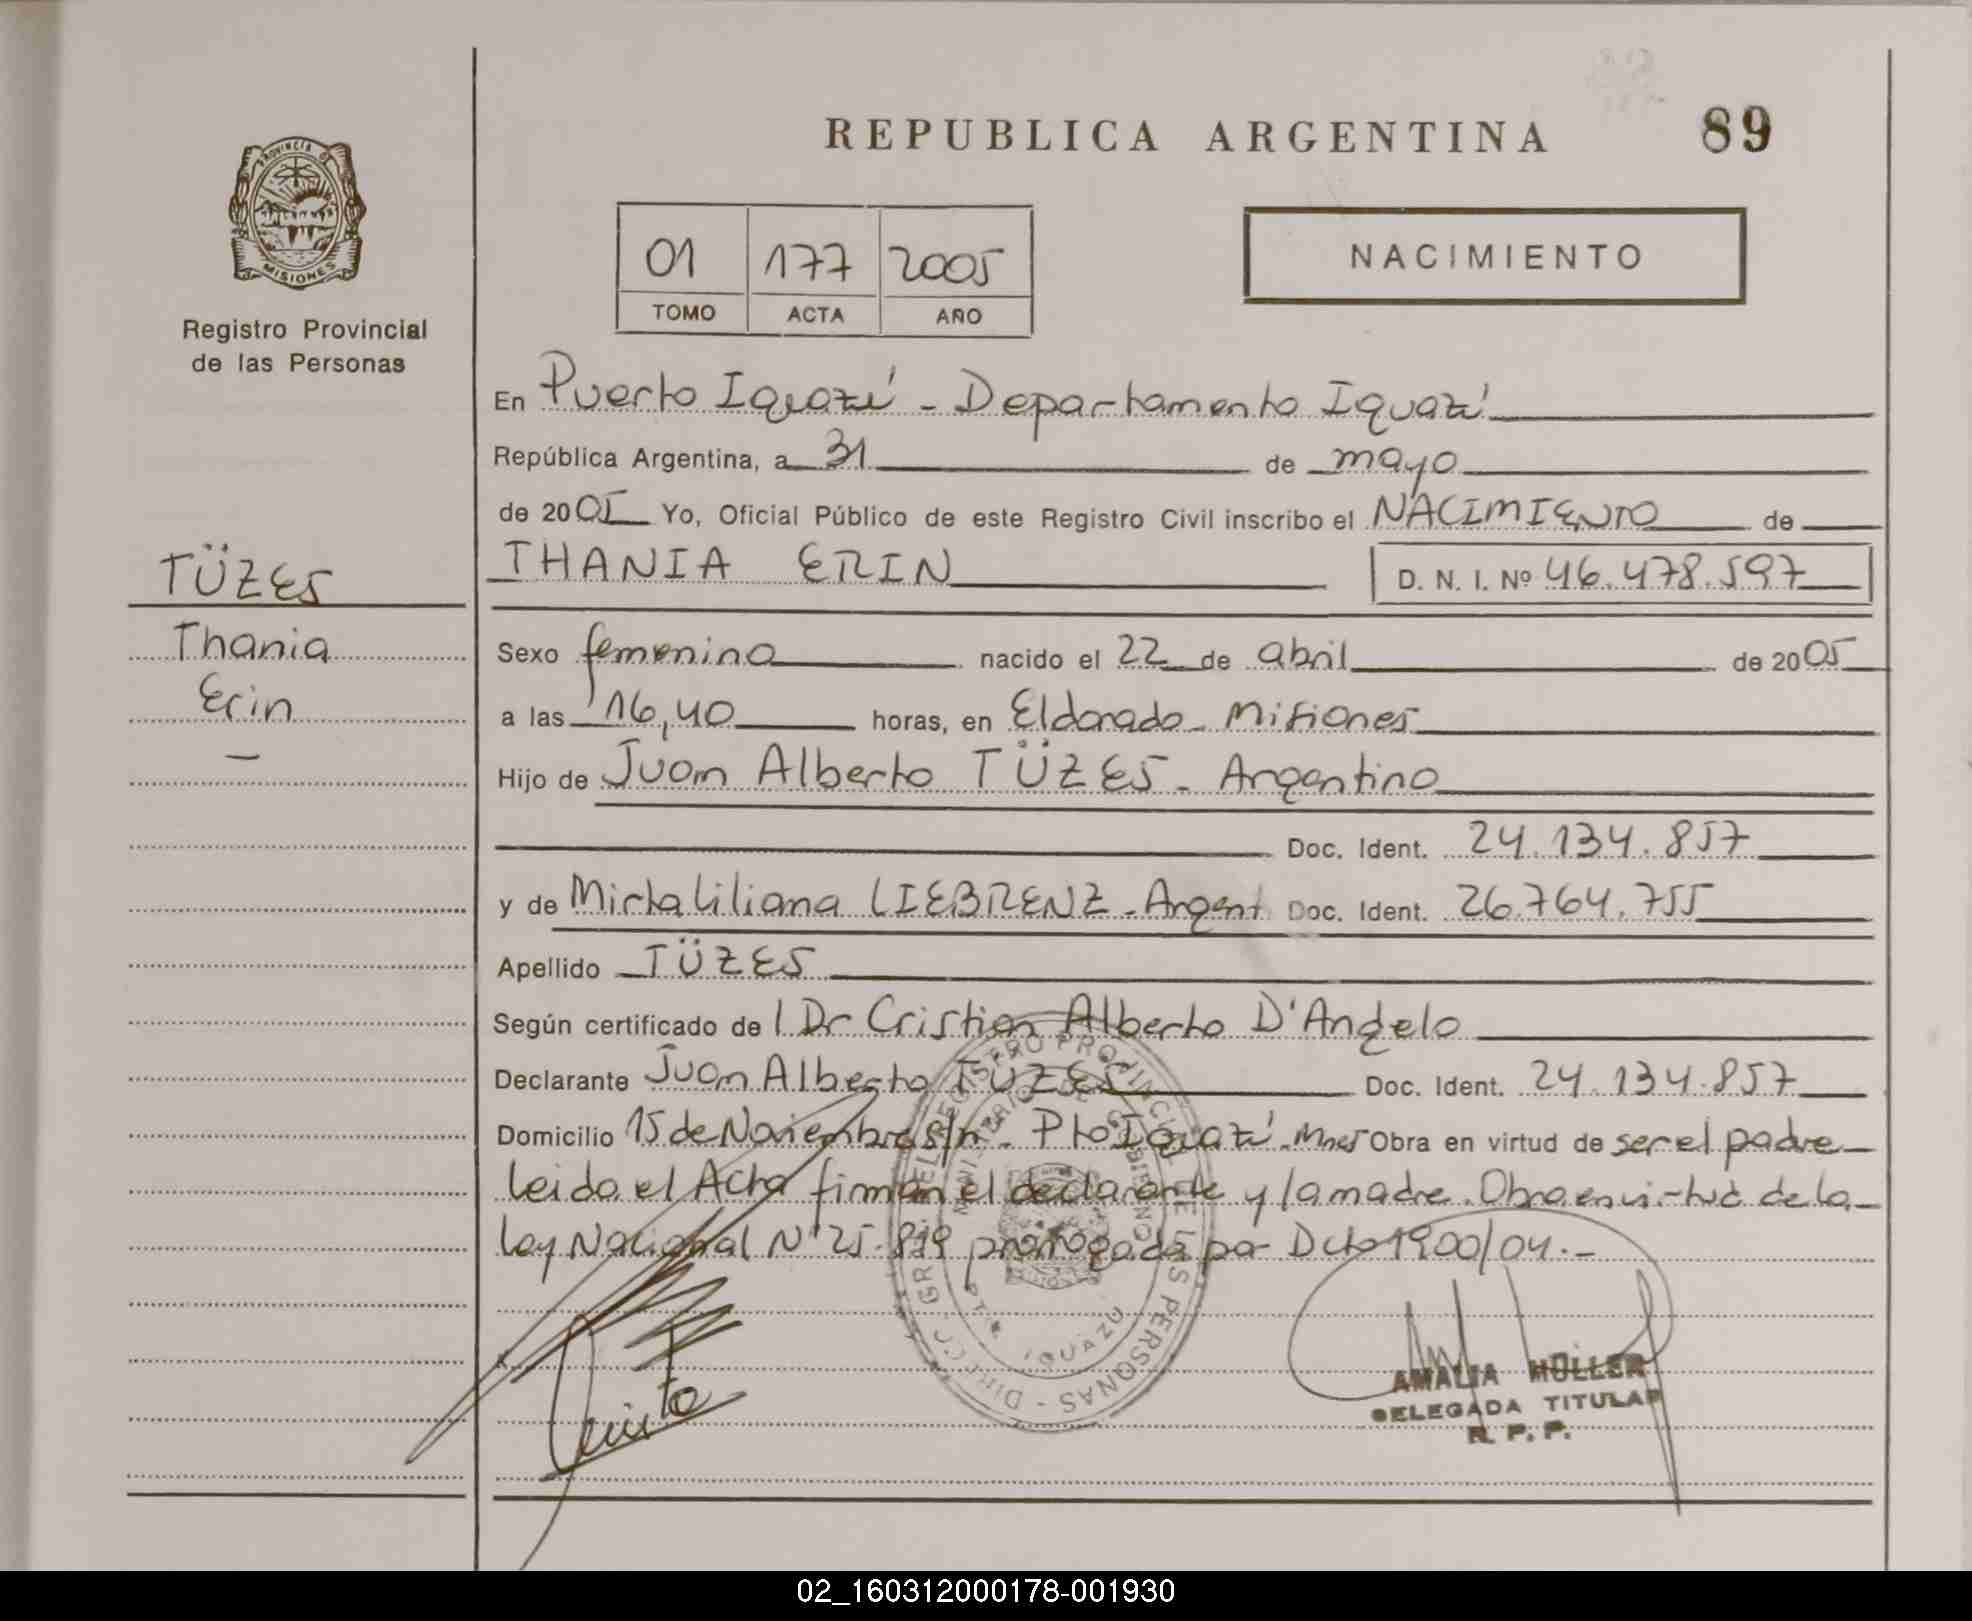 REPUBLICA ARGENTINA
89
PROVINCIA DE
MISIONES
Registro Provincial
de las Personas
01 177 2005
TOMO ACTA AÑO
NACIMIENTO
En Puerto Iguazú - Departamento Iguazú
República Argentina, a 31 de mayo
de 2005 Yo, Oficial Público de este Registro Civil inscribo el NACIMIENTO de
THANIA ERIN D. N. I. Nº 46.478.597
TÜZES
Thania
Erin
Sexo femenino nacido el 22 de abril de 2005
a las 16,40 horas, en Eldorado - Misiones
Hijo de Juan Alberto TÜZES - Argentino
Doc. Ident. 24.134.857
y de Mirta Liliana LIEBRENZ - Argent Doc. Ident. 26.764.755
Apellido TÜZES
Según certificado de l Dr Cristian Alberto D'Angelo
Declarante Juan Alberto TÜZES Doc. Ident. 24.134.857
Domicilio 15 de Noviembre s/n - Pto Iguazú - Mnes Obra en virtud de ser el padre
leida el Acta firman el declarante y la madre. Obra en virtud de la
Ley Nacional Nº 25.819 prorrogada por Dcto 1900/04.-
REGISTRO PROVINCIAL DE LAS PERSONAS
MINISTERIO DE GOBIERNO
IGUAZU
AMALIA MÜLLER
DELEGADA TITULAR
R. P. P.
02_160312000178-001930